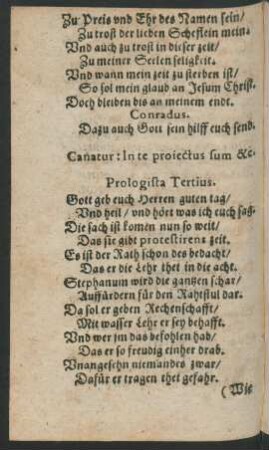 Zu Preis vnd Ehr des Namen sein/
Zu trost der lieben Scheflein mein.
Vnd auch zu trost in dieser zeit/
Zu meiner Seelen seligkeit.
Vnd wann mein zeit zu sterben ist/
So sol mein glaud an Jesum Christ.
Doch bleiben bis an meinem endt.
Conradus.
Dazu auch Gott sein hilff euch send.
Canatur: In te proiectus sum &c.
Prologista Tertius.
Gott geb euch Herren guten tag/
Vnd heil/ vnd hört was ich euch sag.
Die sach ist komen nun so weit/
Das sie gibt protestirens zeit.
Es ist der Rath schon des bedacht/
Das er die Lehr thet in die acht.
Stephanum wird die gantzen schar/
Auffürdern für den Rahtstul dar.
Da sol er geben Rechenschafft/
Mit wasser Lehr er sey behafft.
Vnd wer jm das befohlen hab/
Das er so freudig einher drab.
Vnangesehn niemandes zwar/
Dafür er tragen thet gefahr.
(Wie